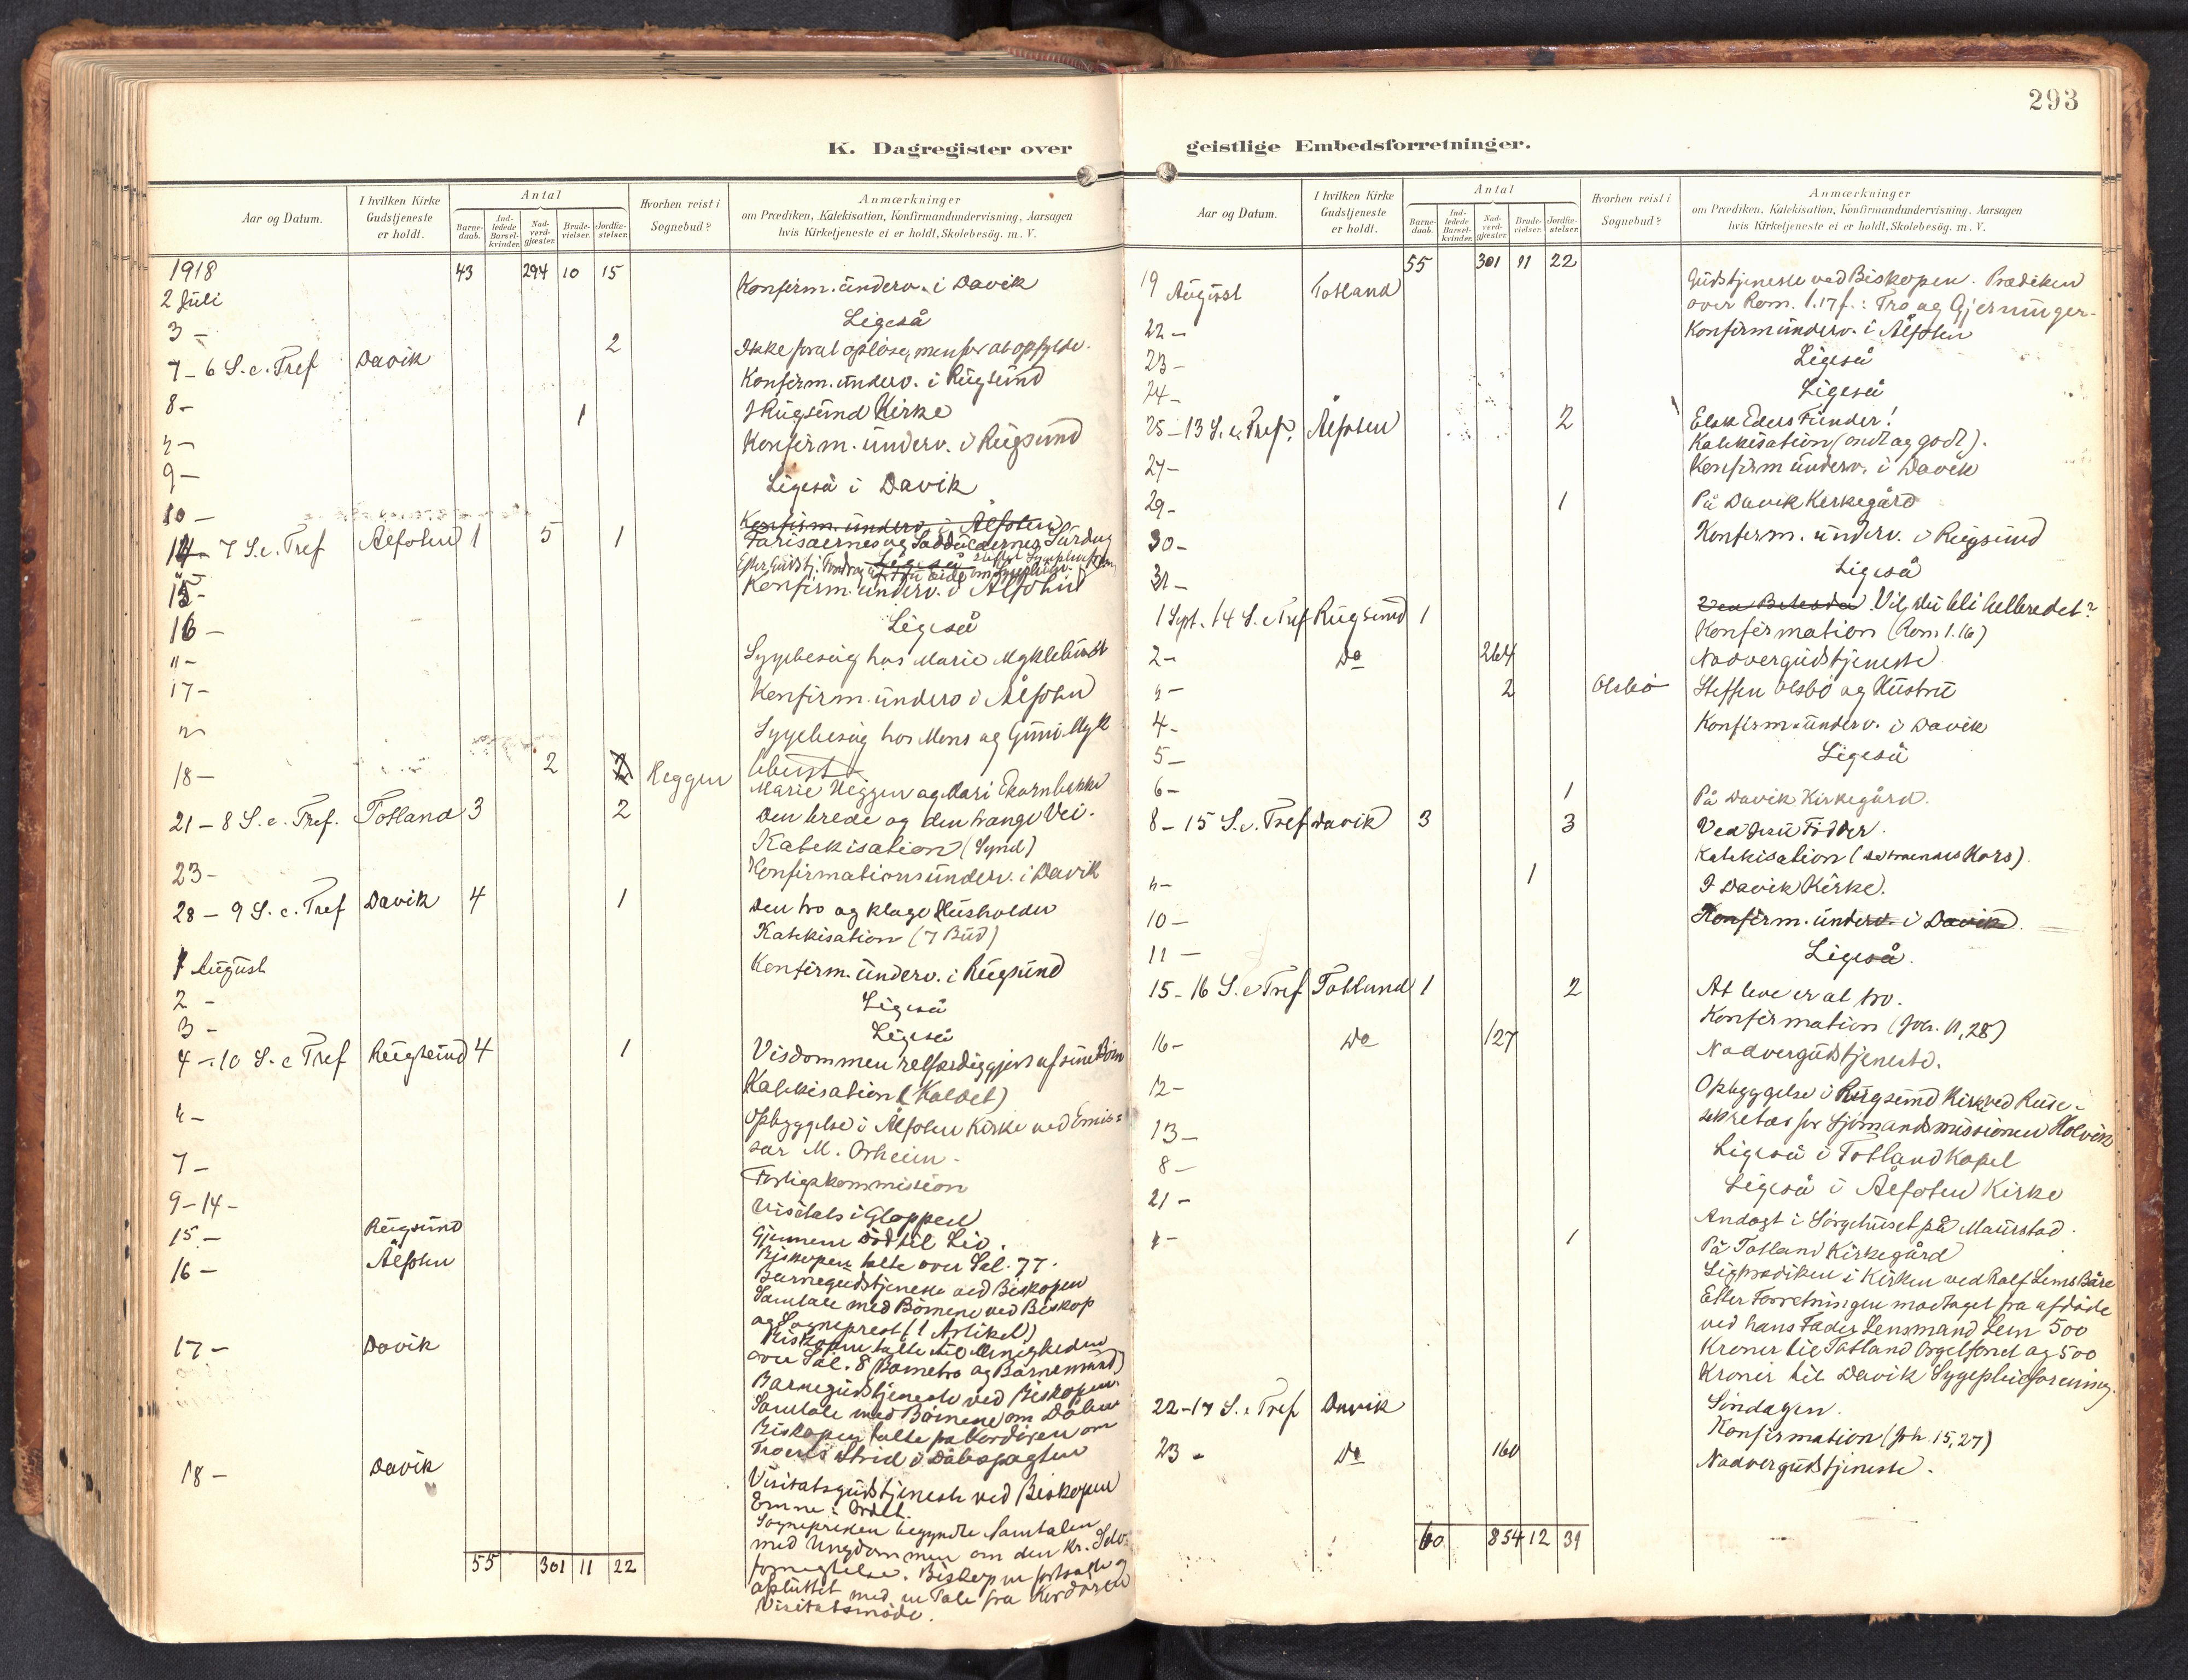 293
K. Dagregister over geistlige Embedsforretninger.
Aar og Datum.
I hvilken Kirke Gudstjeneste er holdt.
Antal
Barne-daab.
Ind-ledede Barsel-kvinder.
Nad-verd-gjæster.
Brude-vielser.
Jordfæ-stelser.
Hvorhen reist i Sognebud?
Anmærkninger
om Prædiken, Katekisation, Konfirmandundervisning, Aarsagen
hvis Kirketjeneste ei er holdt, Skolebesög. m. V.
1918 43 294 10 15
2 Juli Konfirm. underv. i Davik
3 – Ligeså
7 – 6 S. e. Tref Davik 2 Ikke for at opløse, men for at opfylde.
Konfirm. underv. i Rugsund
8 – 1 I Rugsund Kirke
" – Konfirm. underv. i Rugsund
9 – Ligeså i Davik
10 – Konfirm. underv. i Ålfoten
14 – 7 S. e. Tref Ålfoten 1 5 1 Farisaernes og Sadducaernes Surdeig
15 – Konfirm. underv. i Ålfoten
16 – Ligeså
" – Sygebesøg hos Marie Myklebust
17 – Konfirm. underv i Ålfoten
" Sygebesøg hos Mons og Guni Myk
lebust
18 – 2 2 Heggen Marie Heggen og Mari Ekornbakke
21 – 8 S. e. Tref. Totland 3 2 Den brede og den trange Vei.
Katekisation (Synd)
23 – Konfirmationsunderv. i Davik
28 – 9 S. e. Tref Davik 4 1 Den tro og kloge Husholder
Katekisation (7 Bud)
1 August Konfirm. underv. i Rugsund
2 – Ligeså
3 – Ligeså
4 – 10 S. e Tref Rugsund 4 1 Visdommen retfærdiggjort af sine Børn
Katekisation (Kaldet)
" – Opbyggelse i Ålfoten Kirke ved Emis=
sær M. Orheim.
7 – Forligskommission
9 – 14 – Visitats i Gloppen
15 – Rugsund Gjennem Død til Liv.
Biskopen talte over Sal. 77.
16 – Ålfoten Barnegudstjeneste ved Biskopen
Samtale med Børnene ved Biskop
og Sogneprest (1 Artikel)
17 – Davik Biskopen talte til Menigheden
over Sal. 8 (Barnetro og Barnemund)
Barnegudstjeneste ved Biskopen.
Samtale med Børnene om Dåben
Biskopen talte på Kordøren om
Troens Strid i Dåbspagten
18 – Davik Visitatsgudstjeneste ved Biskopen
Emne: Ordet.
Sognepresten begyndte Samtalen
med Ungdommen om den kr. Selv-
fornegtelse. Biskopen fortsatte og
afsluttet med en Tale fra Kordøren
Visitatsmøde.
55 301 11 22
Aar og Datum.
I hvilken Kirke Gudstjeneste er holdt.
Antal
Barne-daab.
Ind-ledede Barsel-kvinder.
Nad-verd-gjæster.
Brude-vielser.
Jordfæ-stelser.
Hvorhen reist i Sognebud?
Anmærkninger
om Prædiken, Katekisation, Konfirmandundervisning, Aarsagen
hvis Kirketjeneste ei er holdt, Skolebesög. m. V.
55 301 11 22
19 August Totland Gudstjeneste ved Biskopen. Prædiken
over Rom. 1.17 f.: Tro og Gjerninger.
22 – Konfirmunderv. i Ålfoten
23 – Ligeså
24 – Ligeså
25 – 13 S. e. Tref. Ålfoten 2 Elsk Eders Fiender!
Katekisation (ondt og godt).
27 – Konfirm underv. i Davik
29 – 1 På Davik Kirkegård
30 – Konfirm. underv. i Rugsund
31 – Ligeså
1 Sept. 14 S. e Tref Rugsund 1 Ved Betesda. Vil du bli helbredet?
Konfirmation (Rom 1.16)
2 – Do 264 Nadvergudstjeneste
" – 2 Olsbø Steffen Olsbø og Hustru
4 – Konfirm. underv. i Davik
5 – Ligeså
6 – 1 På Davik Kirkegård.
8 – 15 S. e. Tref Davik 3 3 Ved Jesu Fødder.
Katekisation (de troendes Kors).
" – 1 I Davik Kirke.
10 – Konfirm. underv. i Davik.
11 – Ligeså.
15 – 16 S. e Tref Totland 1 2 At leve er at tro.
Konfirmation (Joh. 11,28)
16 – Do 127 Nadvergudstjeneste.
12 – Opbyggelse i Rugsund Kirke ved Reise-
sekretær for Sjømandsmissionen Holvik
13 – Ligeså i Totland Kapel
8 – Ligeså i Ålfoten Kirke
21 – Andagt i Sørgehuset på Maurstad.
" – 1 På Totland Kirkegård
Ligprædiken i Kirken ved Rolf Lems Båre
Efter Forretningen modtaget fra afdøde
ved hans Fader Lensmand Lem 500
Kroner til Totland Orgelfond og 500
Kroner til Davik Sygepleieforening.
22 – 17 S. e Tref Davik Søndagen.
Konfirmation (Joh. 15,27)
23 – Do 160 Nadvergudstjeneste.
60 854 12 31